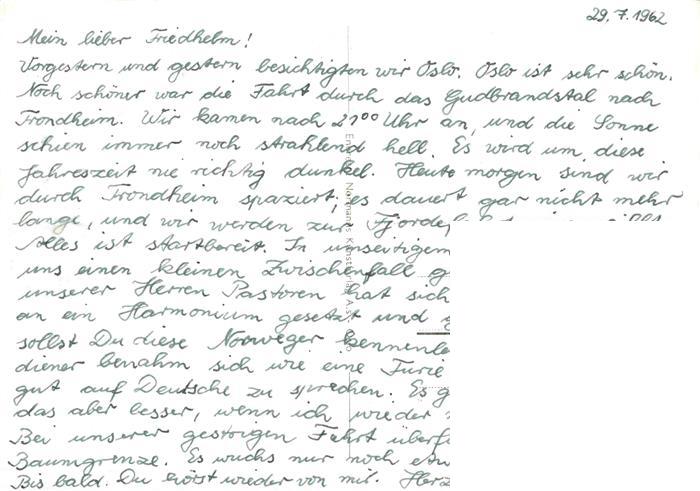 29.7.1962
Mein lieber Friedhelm!
Vorgestern und gestern besichtigten wir Oslo. Oslo ist sehr schön.
Noch schöner war die Fahrt durch das Gudbrandstal nach
Trondheim. Wir kamen nach 21⁰⁰ Uhr an, und die Sonne
schien immer noch strahlend hell. Es wird um diese
Jahreszeit nie richtig dunkel. Heute morgen sind wir
durch Trondheim spaziert; es dauert gar nicht mehr
lange, und wir werden zur Fjorde
Alles ist startbereit. In umseitigem
uns einen kleinen Zwischenfall
unserer Herren Pastoren hat sich
an ein Harmonium gesetzt und
sollst Du diese Norweger
diener benahm sich wie eine Furie
gut auf Deutsche zu sprechen. Es
das aber besser, wenn ich wieder
Bei unserer gestrigen Fahrt
Baumgrenze. Es wuchs nur noch
Bis bald. Du hörst wieder von mir.